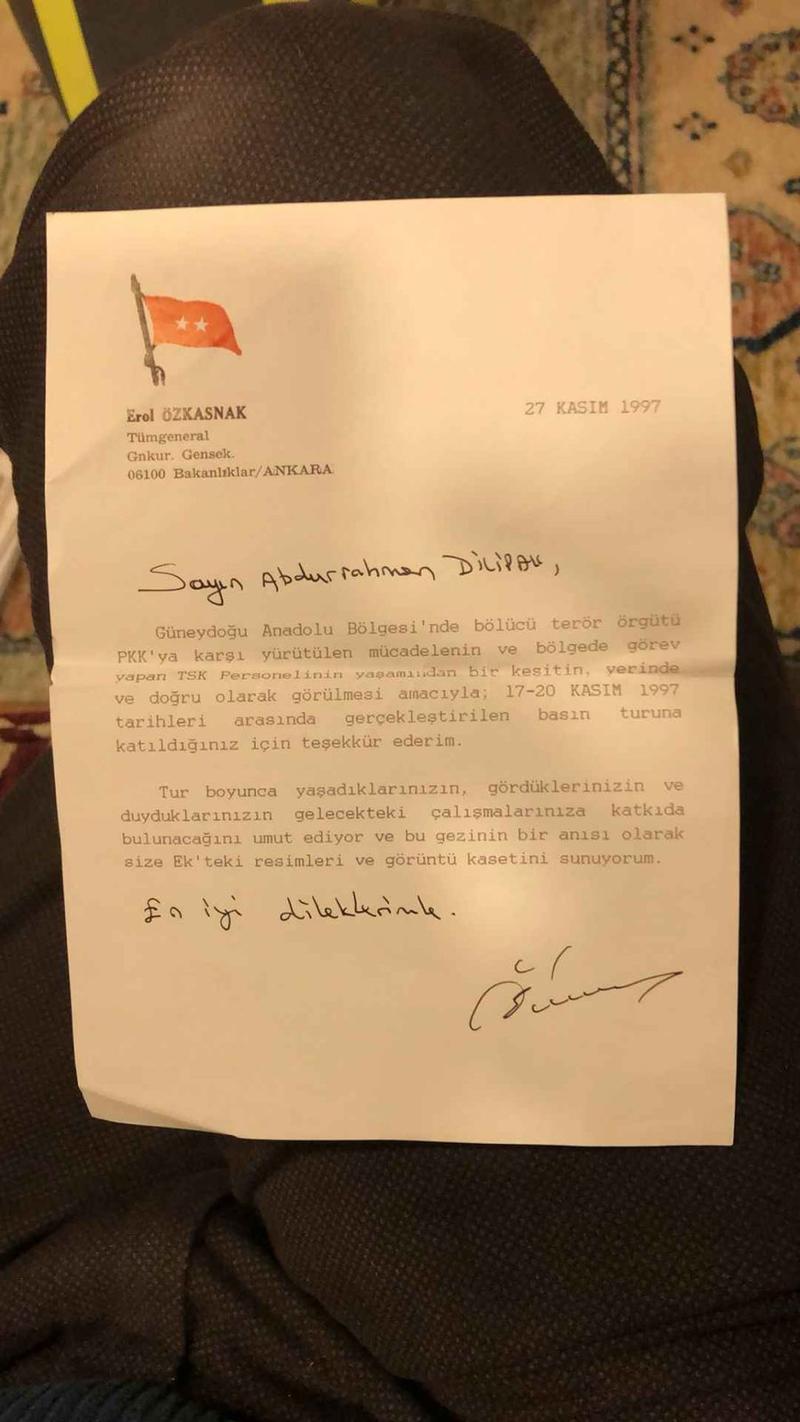 Erol ÖZKASNAK
Tümgeneral
Gnkur. Gensek.
06100 Bakanlıklar/ANKARA
27 KASIM 1997
Sayın Abdurrahman DİLİPAK,
Güneydoğu Anadolu Bölgesi'nde bölücü terör örgütü
PKK'ya karşı yürütülen mücadelenin ve bölgede görev
yapan TSK Personelinin yaşamından bir kesitin, yerinde
ve doğru olarak görülmesi amacıyla; 17-20 KASIM 1997
tarihleri arasında gerçekleştirilen basın turuna
katıldığınız için teşekkür ederim.
Tur boyunca yaşadıklarınızın, gördüklerinizin ve
duyduklarınızın gelecekteki çalışmalarınıza katkıda
bulunacağını umut ediyor ve bu gezinin bir anısı olarak
size Ek'teki resimleri ve görüntü kasetini sunuyorum.
En iyi dileklerimle.